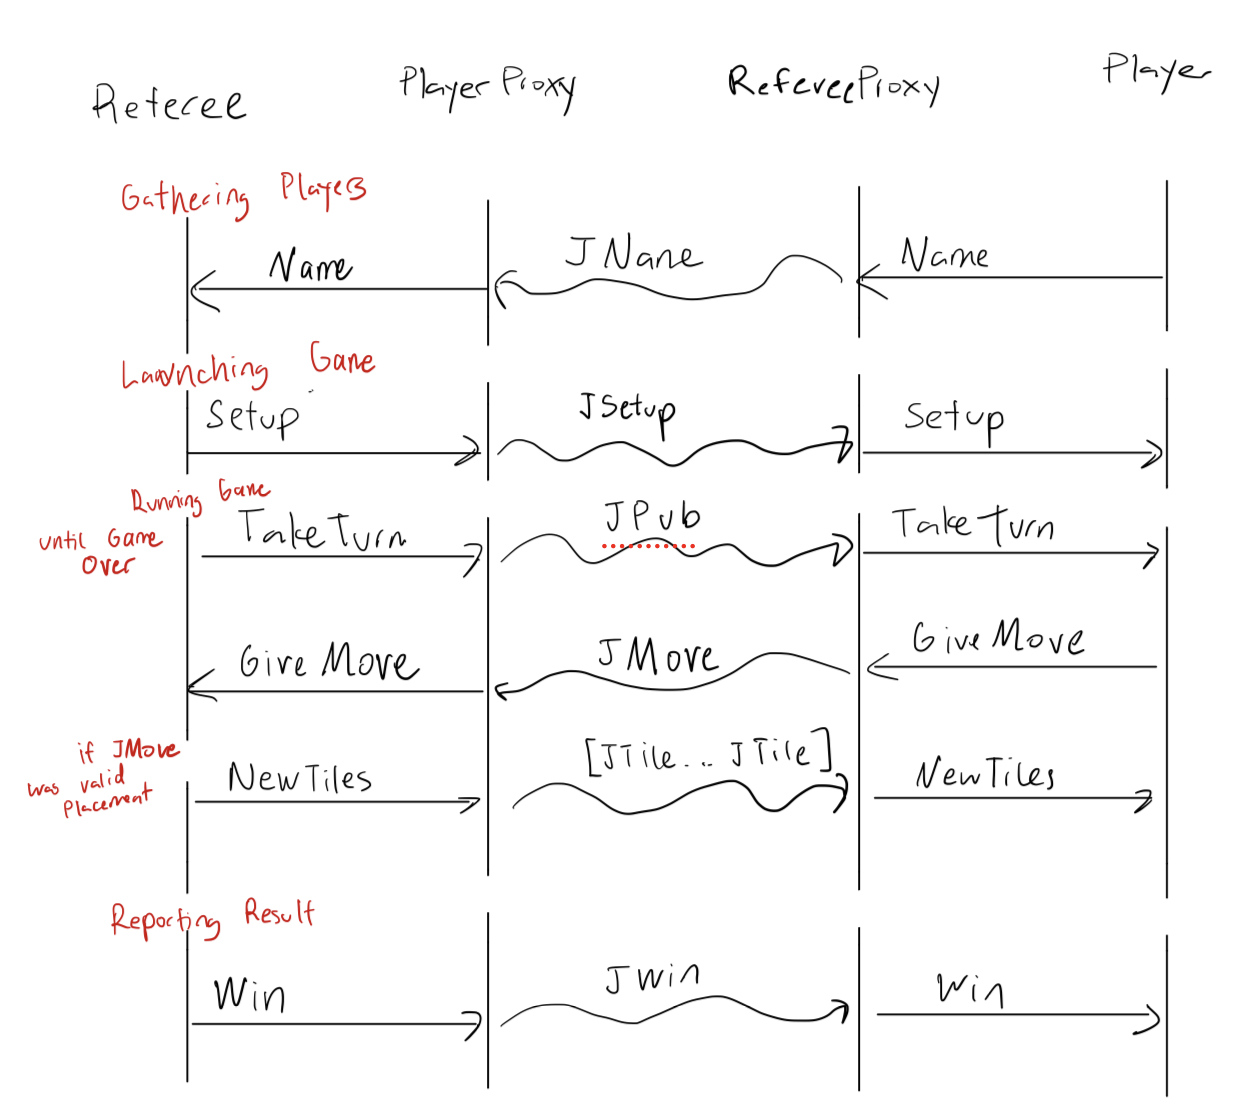 Referee PlayerProxy RefereeProxy Player
Gathering Players
Name JName Name
Launching Game
Setup JSetup Setup
Running Game
until Game Over
TakeTurn JPub TakeTurn
GiveMove JMove GiveMove
if JMove
was valid
Placement
NewTiles [JTile... JTile] NewTiles
Reporting Result
Win JWin Win